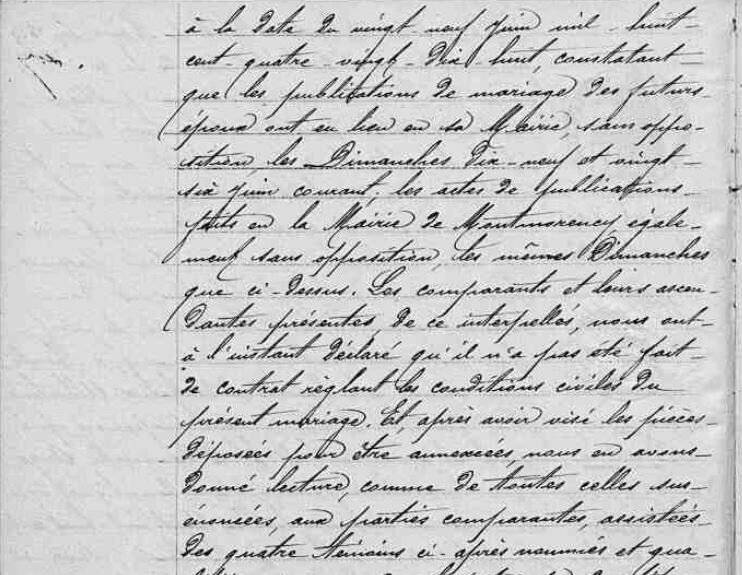 à la date du vingt neuf Juin mil - huit -
cent - quatre - vingt - dix - huit, constatant -
que les publications de mariage des futurs
époux ont eu lieu en sa Mairie, sans oppo-
sition, les Dimanches dix - neuf et vingt -
six Juin courant; les actes de publications
faits en la Mairie de Montmorency, égale-
ment sans opposition, les mêmes Dimanches
que ci - dessus. Les comparants et leurs ascen-
dantes présentes, de ce interpellés, nous ont -
à l'instant déclaré qu'il n'a pas été fait -
de contrat règlant les conditions civiles du
présent mariage. Et après avoir visé les pièces
déposées pour être annexées, nous en avons -
donné lecture, comme de toutes celles sus -
énoncées, aux parties comparantes, assistées
des quatre témoins ci - après nommés et qua -